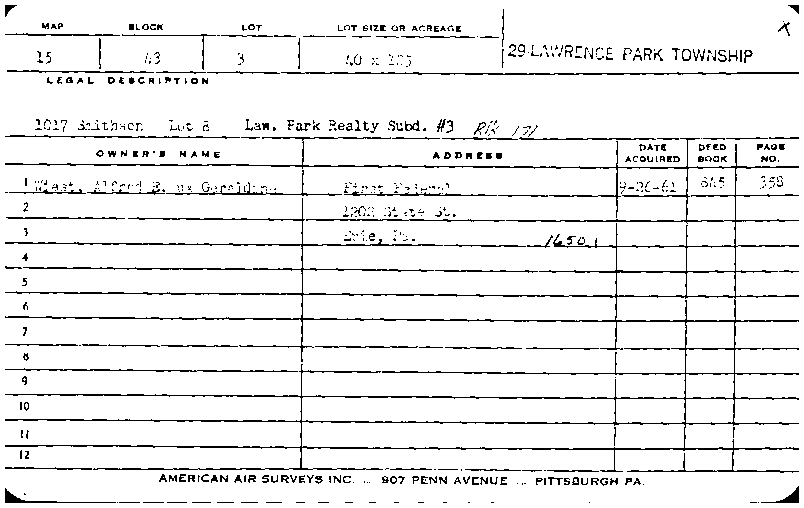 MAP BLOCK LOT LOT SIZE OR ACREAGE X
15 43 3 40 x 29-LAWRENCE PARK TOWNSHIP
LEGAL DESCRIPTION
1017 Smithson Lot 8 Law. Park Realty Subd. #3 171
OWNER'S NAME ADDRESS DATE ACQUIRED DEED BOOK PAGE NO.
1 Alfred E. ux Geraldine First Federal 9-26-61 845 358
2 State St.
3 Erie, Pa. 16501
4
5
6
7
8
9
10
11
12
AMERICAN AIR SURVEYS INC. ... 907 PENN AVENUE ... PITTSBURGH PA.